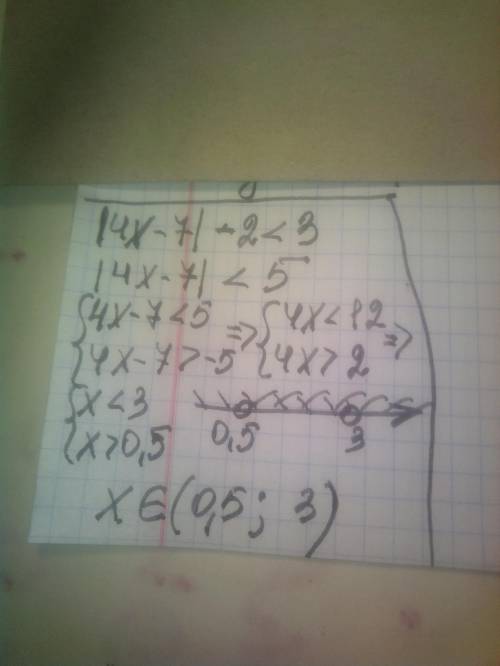 |4x-7|-2<3
|4x-7| < 5
{4x-7<5 => {4x<12 =>
{4x-7>-5 {4x>2
{x<3
{x>0,5 0,5 3
x∈(0,5; 3)